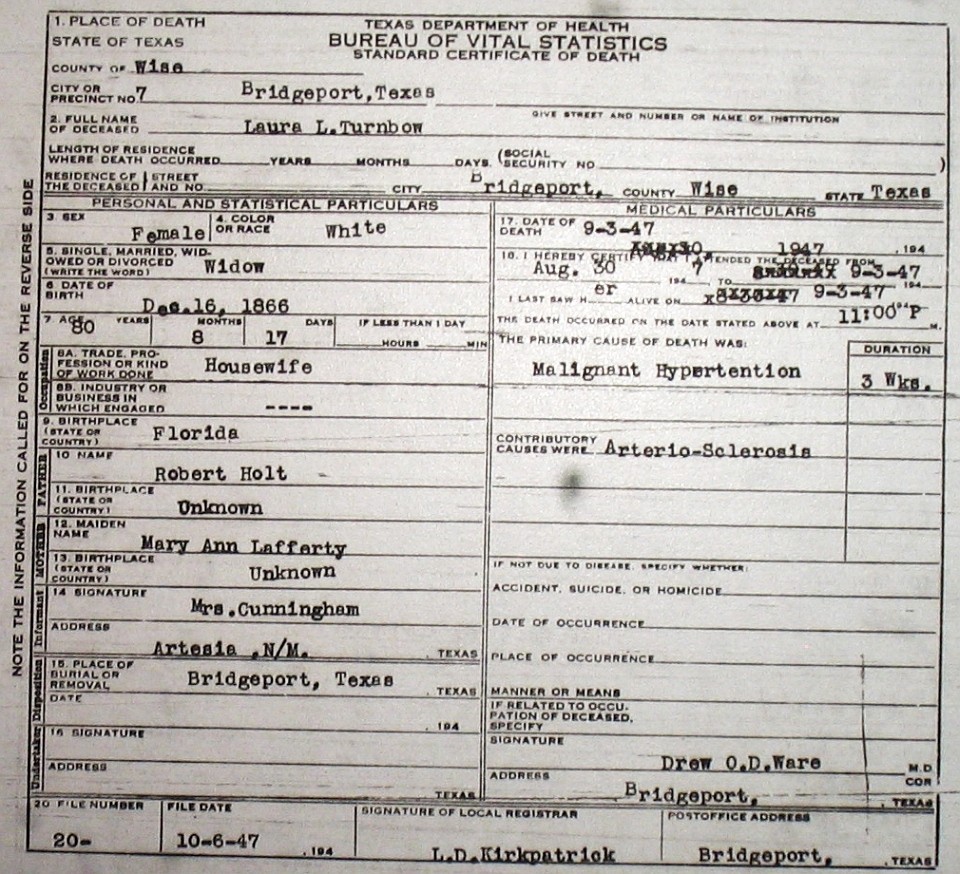 1. PLACE OF DEATH
STATE OF TEXAS
COUNTY OF Wise
TEXAS DEPARTMENT OF HEALTH
BUREAU OF VITAL STATISTICS
STANDARD CERTIFICATE OF DEATH
CITY OR
PRECINCT NO. 7 Bridgeport, Texas
GIVE STREET AND NUMBER OR NAME OF INSTITUTION
2. FULL NAME
OF DECEASED Laura L. Turnbow
LENGTH OF RESIDENCE
WHERE DEATH OCCURRED YEARS MONTHS DAYS. (SOCIAL
SECURITY NO. )
RESIDENCE OF STREET
THE DECEASED AND NO. CITY Bridgeport, COUNTY Wise STATE Texas
PERSONAL AND STATISTICAL PARTICULARS
3. SEX Female
4. COLOR
OR RACE White
5. SINGLE, MARRIED, WID-
OWED OR DIVORCED
(WRITE THE WORD) Widow
6 DATE OF
BIRTH Dec. 16, 1866
7 AGE 80 YEARS 8 MONTHS 17 DAYS IF LESS THAN 1 DAY
HOURS MIN
Occupation
8A. TRADE, PRO-
FESSION OR KIND
OF WORK DONE Housewife
8B. INDUSTRY OR
BUSINESS IN
WHICH ENGAGED ----
9. BIRTHPLACE
(STATE OR
COUNTRY) Florida
FATHER
10 NAME Robert Holt
11. BIRTHPLACE
(STATE OR
COUNTRY) Unknown
MOTHER
12. MAIDEN
NAME Mary Ann Lafferty
13. BIRTHPLACE
(STATE OR
COUNTRY) Unknown
Informant
14 SIGNATURE Mrs. Cunningham
ADDRESS Artesia , N/M. , TEXAS
Disposition
15. PLACE OF
BURIAL OR
REMOVAL Bridgeport, Texas , TEXAS
DATE , 194
Undertaker
16 SIGNATURE
ADDRESS TEXAS
MEDICAL PARTICULARS
17. DATE OF
DEATH 9-3-47
1947 , 194
18. I HEREBY CERTIFY THAT I ATTENDED THE DECEASED FROM
Aug. 30 194 7 TO 9-3-47 194
I LAST SAW Her ALIVE ON 9-3-47 194
THE DEATH OCCURRED ON THE DATE STATED ABOVE AT 11:00 P M.
THE PRIMARY CAUSE OF DEATH WAS:
DURATION
Malignant Hypertention 3 Wks.
CONTRIBUTORY
CAUSES WERE Arterio-Sclerosis
IF NOT DUE TO DISEASE, SPECIFY WHETHER:
ACCIDENT, SUICIDE, OR HOMICIDE
DATE OF OCCURRENCE
PLACE OF OCCURRENCE
MANNER OR MEANS
IF RELATED TO OCCU-
PATION OF DECEASED,
SPECIFY
SIGNATURE Drew O.D. Ware M.D
COR
ADDRESS Bridgeport, , TEXAS
20 FILE NUMBER 20-
FILE DATE 10-6-47 , 194
SIGNATURE OF LOCAL REGISTRAR L.D. Kirkpatrick
POSTOFFICE ADDRESS Bridgeport, , TEXAS
NOTE THE INFORMATION CALLED FOR ON THE REVERSE SIDE